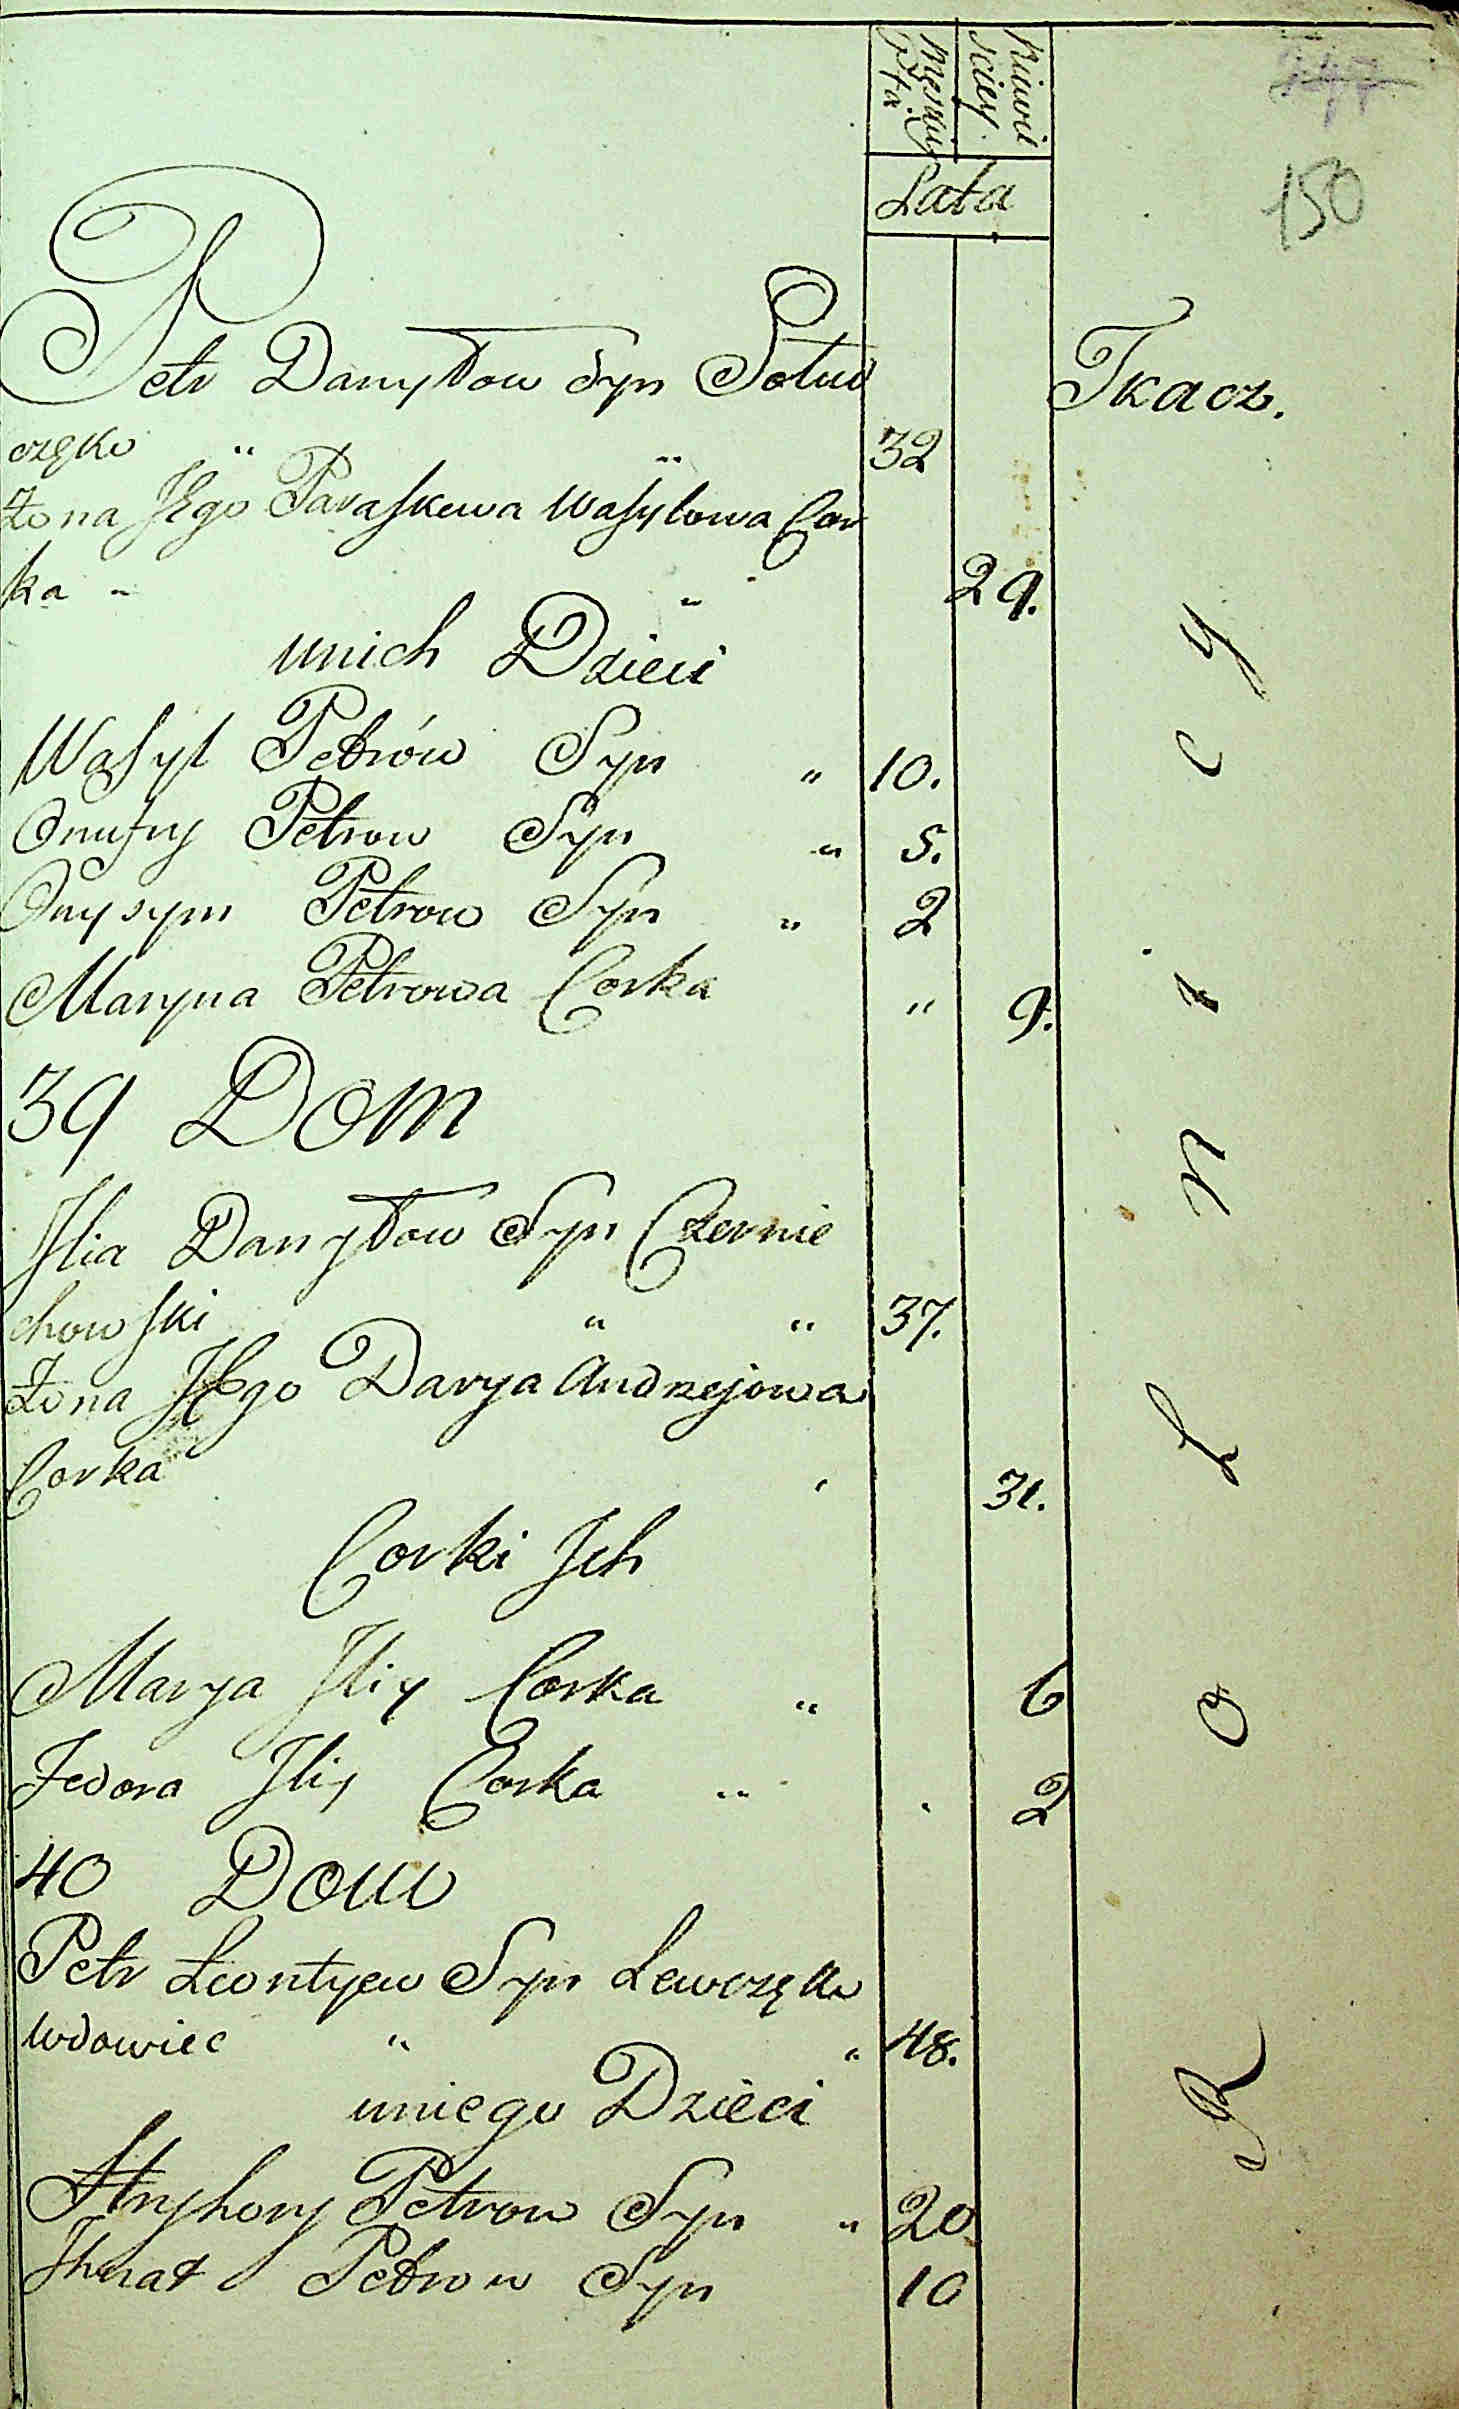 Męskiey Płci
Niewieściey
Lata
347
150
Petr Danyłow Syn Sołud
Tkacz.
częko " " 32
Żona Jego Paraskewa Wasylowa Cor
ka " " 29.
unich Dzieci
Wasyl Petrów Syn " 10.
Onufry Petrow Syn " 5.
Onysym Petrow Syn " 2
Maryna Petrowa Corka " 9.
39 Dom
Ilia Danyłow Syn Czernie
chowski " " 37.
Żona Jego Darya Andrzejowa
Corka 31.
Corki Ich
Marya Iliy Corka " 6
Fedora Iliy Corka " 2
40 Dom
Petr Łeontyew Syn Lewczęko
Wdowiec " " 48.
uniego Dzieci
Hryhory Petrow Syn " 20
Ihnat Petrow Syn 10
Rolnicy